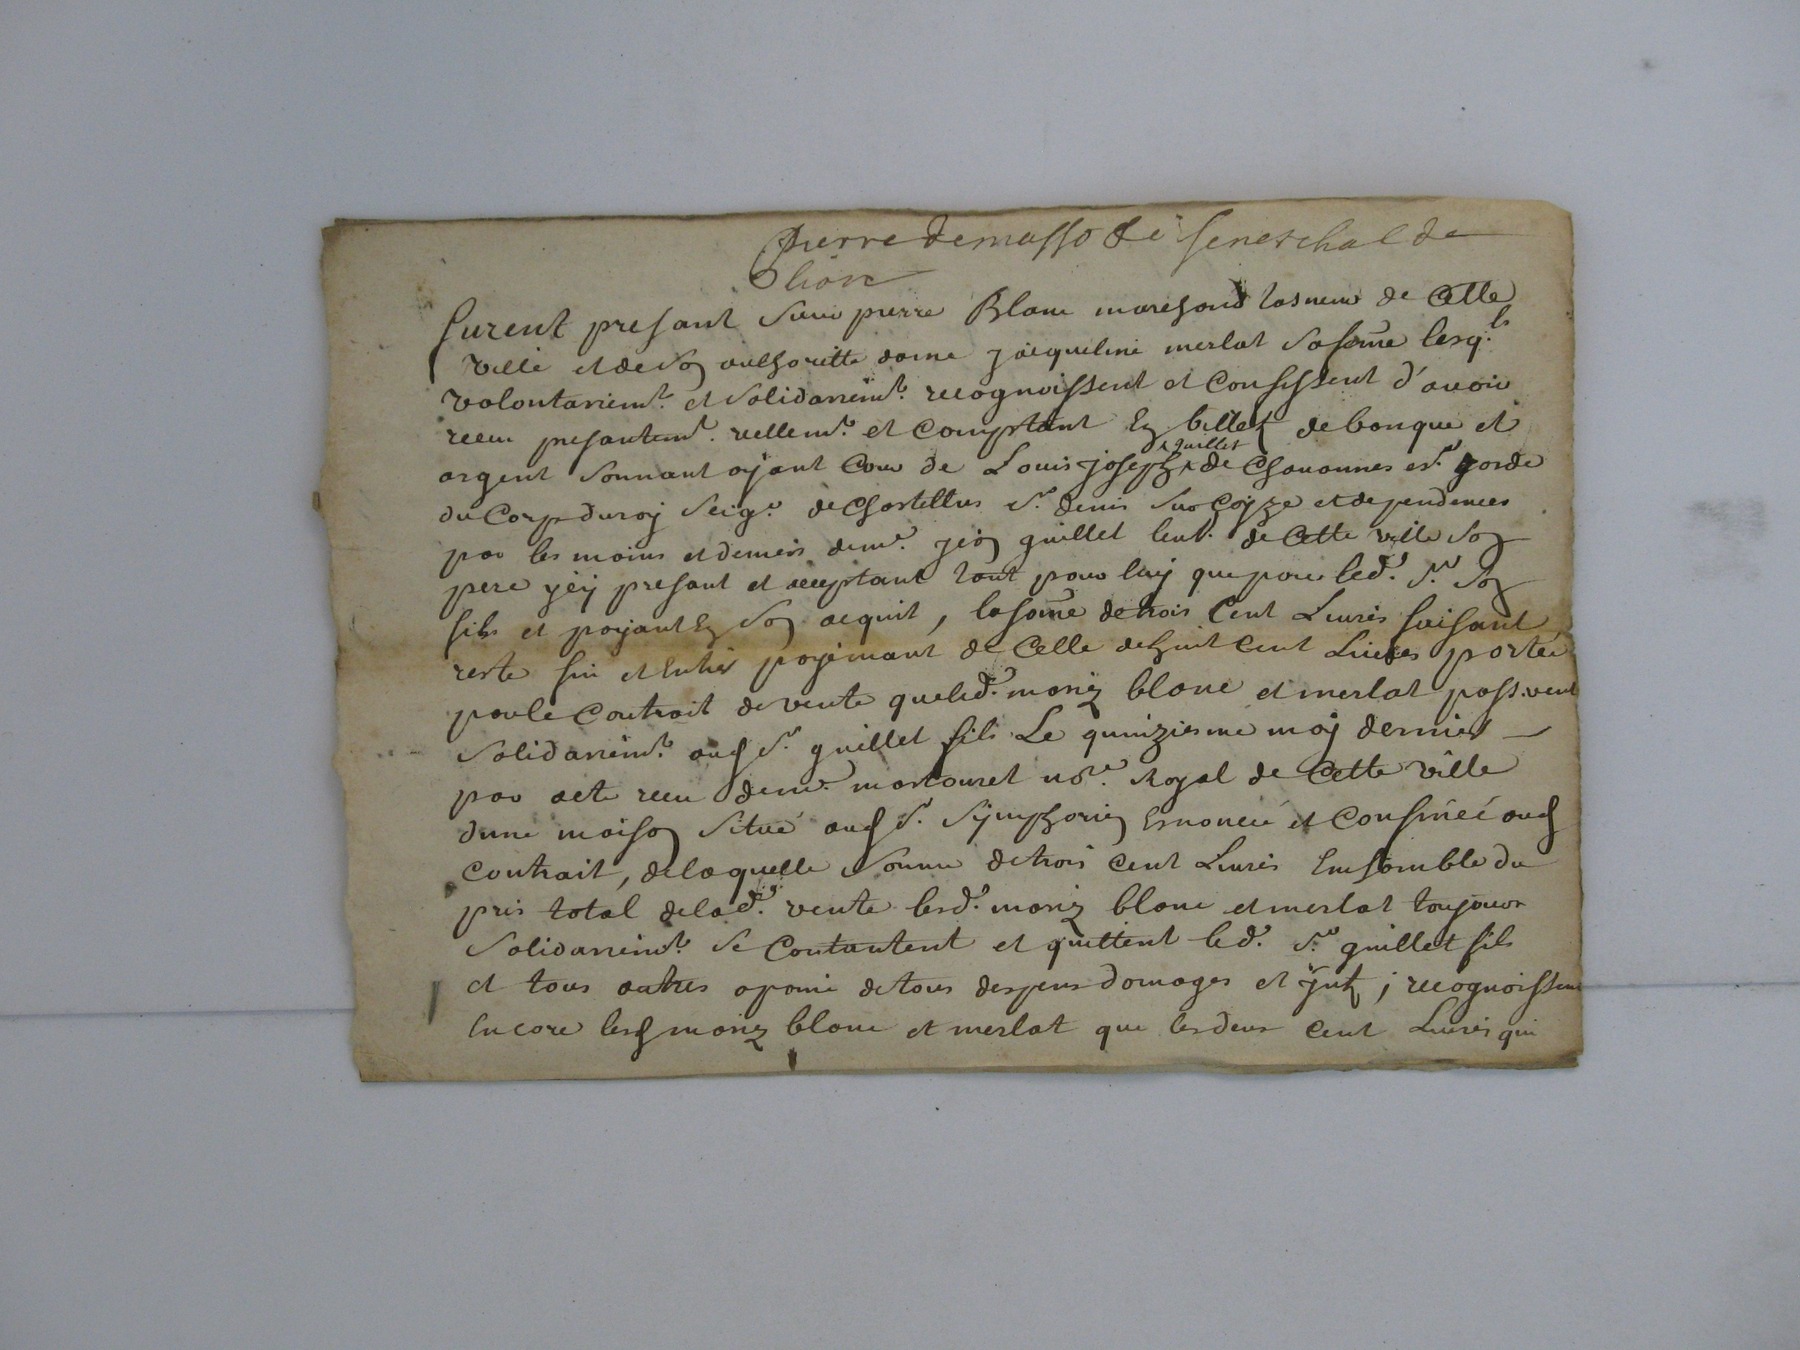 pierre demasso de seneschal de
lion
furent presant sieur pierre Blanc marchand tasneur de Cette
ville et de son authoritte dame jacqueline merlat sa fame lesq.ls
volontariem.t et solidariem.t recognoissent et Confessent d'avoir
receu presantem.t reellem.t et Comptant En billets de banque et
argent sonnant ayant Cour de Louis joseph guillet de Chavannes es.r garde
du Corps du roy seig.r de Chastellus s.t denis sur Coyze et dependences
par les mains et deniers de m.e jean guillet lieut. de Cette ville son
pere yci presant et acceptant tant pour luy que pour led.t s.r son
fils et payant En son acquit, la some de trois Cent Livres faisant
reste fin et Entier payemant de Celle de huit Cent Livres portée
par le Contrait de vente que led.t mariez blanc et merlat pass.rent
solidariem.t aud s.r guillet fils Le quinziesme may dernier
par acte receu de m.e mortouret no.re Royal de Cette ville
dune maison située aud s.t symphorien Enoncée et Confinéé aud
Contrait, de laquelle somme de trois Cent Livres Ensemble du
pris total de lad.te vente lesd.t mariez blanc et merlat toujours
solidariem.t se Contantent et quittent led.t s.r guillet fils
et tous autres a paine de tous despens domages et jnts; recognoissent
Encore lesd mariez blanc et merlat que les deux Cent Livres qui